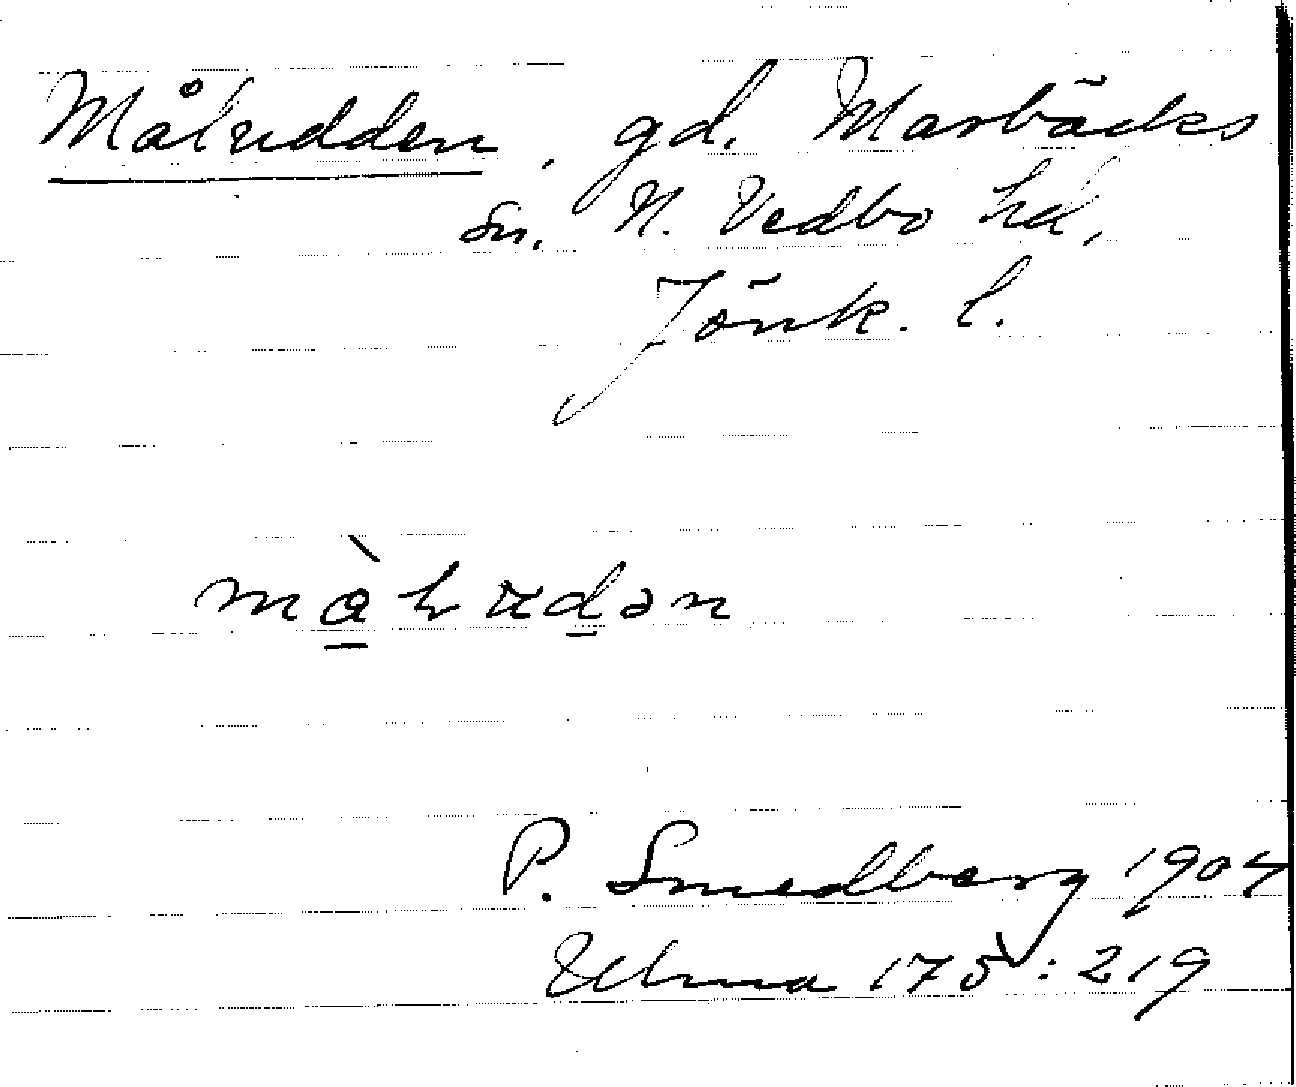 Måludden, gd. Marbäcks
sn. N. Vedbo hd,
Jönk. l.
P. Smedberg 1904
Ulma 175:219